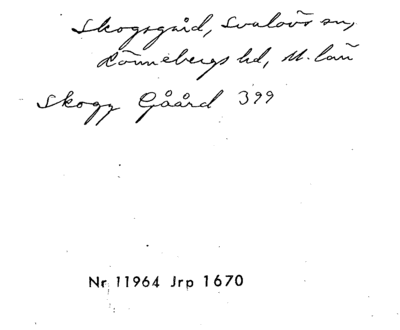 Skogsgård, Svalövs sn,
Rönnebergs hd, M. län
Skogz Gåård 399
Nr 11964 Jrp 1670